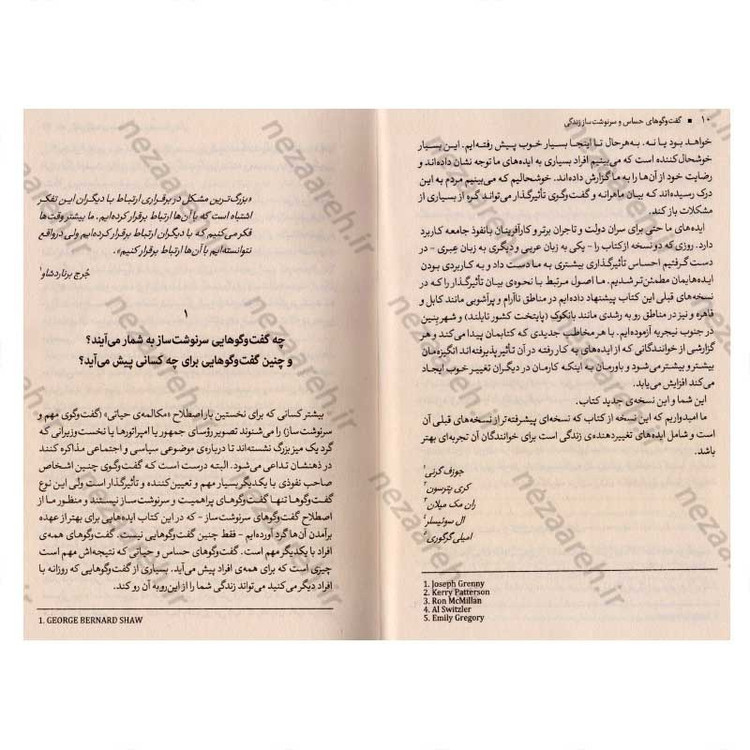 ۱۰ ■ گفت‌وگوهای حساس و سرنوشت‌ساز زندگی
خواهد بود یا نه. به‌هرحال تا اینجا بسیار خوب پیش رفته‌ایم. این بسیار
خوشحال کننده است که می‌بینیم افراد بسیاری به ایده‌های ما توجه نشان داده‌اند و
رضایت خود از آن‌ها را به ما گزارش داده‌اند. خوشحالیم که می‌بینیم مردم به این
درک رسیده‌اند که بیان ماهرانه و گفت‌وگوی تأثیرگذار می‌تواند گره از بسیاری از
مشکلات باز کند.
ایده‌های ما حتی برای سران دولت و تاجران برتر و کارآفرینان بانفوذ جامعه کاربرد
دارد. روزی که دو نسخه از کتاب را – یکی به زبان عربی و دیگری به زبان عِبری – در
دست گرفتیم احساس تأثیرگذاری بیشتری به ما دست داد و به کاربردی بودن
ایده‌هایمان مطمئن‌تر شدیم. ما اصول مرتبط با نحوه‌ی بیان تأثیرگذار را که در
نسخه‌های قبلی این کتاب پیشنهاد داده‌ایم در مناطق ناآرام و پرآشوبی مانند کابل و
قاهره و نیز در مناطق رو به رشدی مانند بانکوک (پایتخت کشور تایلند) و شهر بِنین
در جنوب نیجریه آزموده‌ایم. با هر مخاطب جدیدی که کتابمان پیدا می‌کند و هر
گزارشی از خوانندگانی که از ایده‌های به کار رفته در آن تأثیر پذیرفته‌اند انگیزه‌مان
بیشتر و بیشتر می‌شود و باورمان به اینکه کارمان در دیگران تغییر خوب ایجاد
می‌کند افزایش می‌یابد.
این شما و این نسخه‌ی جدید کتاب.
ما امیدواریم که این نسخه از کتاب که نسخه‌ای پیشرفته‌تر از نسخه‌های قبلی آن
است و شامل ایده‌های تغییردهنده‌ی زندگی است برای خوانندگان آن تجربه‌ای بهتر
باشد.
جوزف گرنی۱
کری پترسون۲
ران مک میلان۳
ال سوئیسلر۴
امیلی گرگوری۵
1. Joseph Grenny
2. Kerry Patterson
3. Ron McMillan
4. Al Switzler
5. Emily Gregory
«بزرگ‌ترین مشکل در برقراری ارتباط با دیگران این تفکر
اشتباه است که با آن‌ها ارتباط برقرار کرده‌ایم. ما بیشتر وقت‌ها
فکر می‌کنیم که با دیگران ارتباط برقرار کرده‌ایم ولی درواقع
نتوانسته‌ایم با آن‌ها ارتباط برقرار کنیم».
جُرج برنارد شاو۱
۱
چه گفت‌وگوهایی سرنوشت‌ساز به شمار می‌آیند؟
و چنین گفت‌وگوهایی برای چه کسانی پیش می‌آید؟
بیشتر کسانی که برای نخستین بار اصطلاح «مکالمه‌ی حیاتی» (گفت‌وگوی مهم و
سرنوشت‌ساز) را می‌شنوند تصویر رؤسای جمهور یا امپراتورها یا نخست‌وزیرانی که
گرد یک میز بزرگ نشسته‌اند تا درباره‌ی موضوعی سیاسی و اجتماعی مذاکره کنند
در ذهنشان تداعی می‌شود. البته درست است که گفت‌وگوی چنین اشخاص
صاحب نفوذی با یکدیگر بسیار مهم و تعیین کننده و تأثیرگذار است ولی این نوع
گفت‌وگوها تنها گفت‌وگوهای پراهمیت و سرنوشت‌ساز نیستند و منظور ما از
اصطلاح گفت‌وگوهای سرنوشت‌ساز – که در این کتاب ایده‌هایی برای بهتر از عهده
برآمدن آن‌ها گرد آورده‌ایم – فقط چنین گفت‌وگوهایی نیست. گفت‌وگوهای همه‌ی
افراد با یکدیگر مهم است. گفت‌وگوهای حساس و حیاتی که نتیجه‌اش مهم است
چیزی است که برای همه‌ی افراد پیش می‌آید. بسیاری از گفت‌وگوهایی که روزانه با
افراد دیگر می‌کنید می‌تواند زندگی شما را از این‌رو به آن رو کند.
1. GEORGE BERNARD SHAW
nezaareh.ir